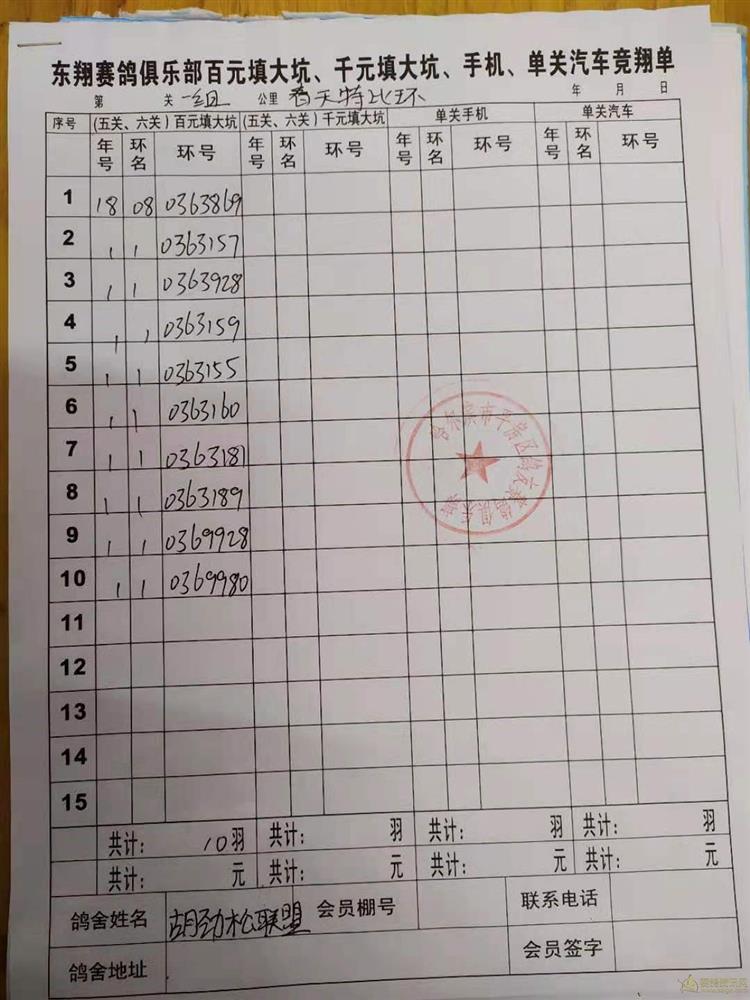 东翔赛鸽俱乐部百元填大坑、千元填大坑、手机、单关汽车竞翔单
第 关 一组 公里 春天特比环 年 月 日
序号 (五关、六关)百元填大坑 (五关、六关)千元填大坑 单关手机 单关汽车
年号 环名 环号 年号 环名 环号 年号 环名 环号 年号 环名 环号
1 18 08 0363869
2 , , 0363157
3 , , 0363928
4 , , 0363159
5 , , 0363155
6 , , 0363160
7 , , 0363181
8 , , 0363189
9 , , 0369928
10 , , 0369980
11
12
13
14
15
共计: 10羽 共计: 羽 共计: 羽 共计: 羽
共计: 元 共计: 元 共计: 元 共计: 元
鸽舍姓名 胡劲松联盟 会员棚号 联系电话
鸽舍地址 会员签字
哈尔滨市平房区 赛鸽俱乐部